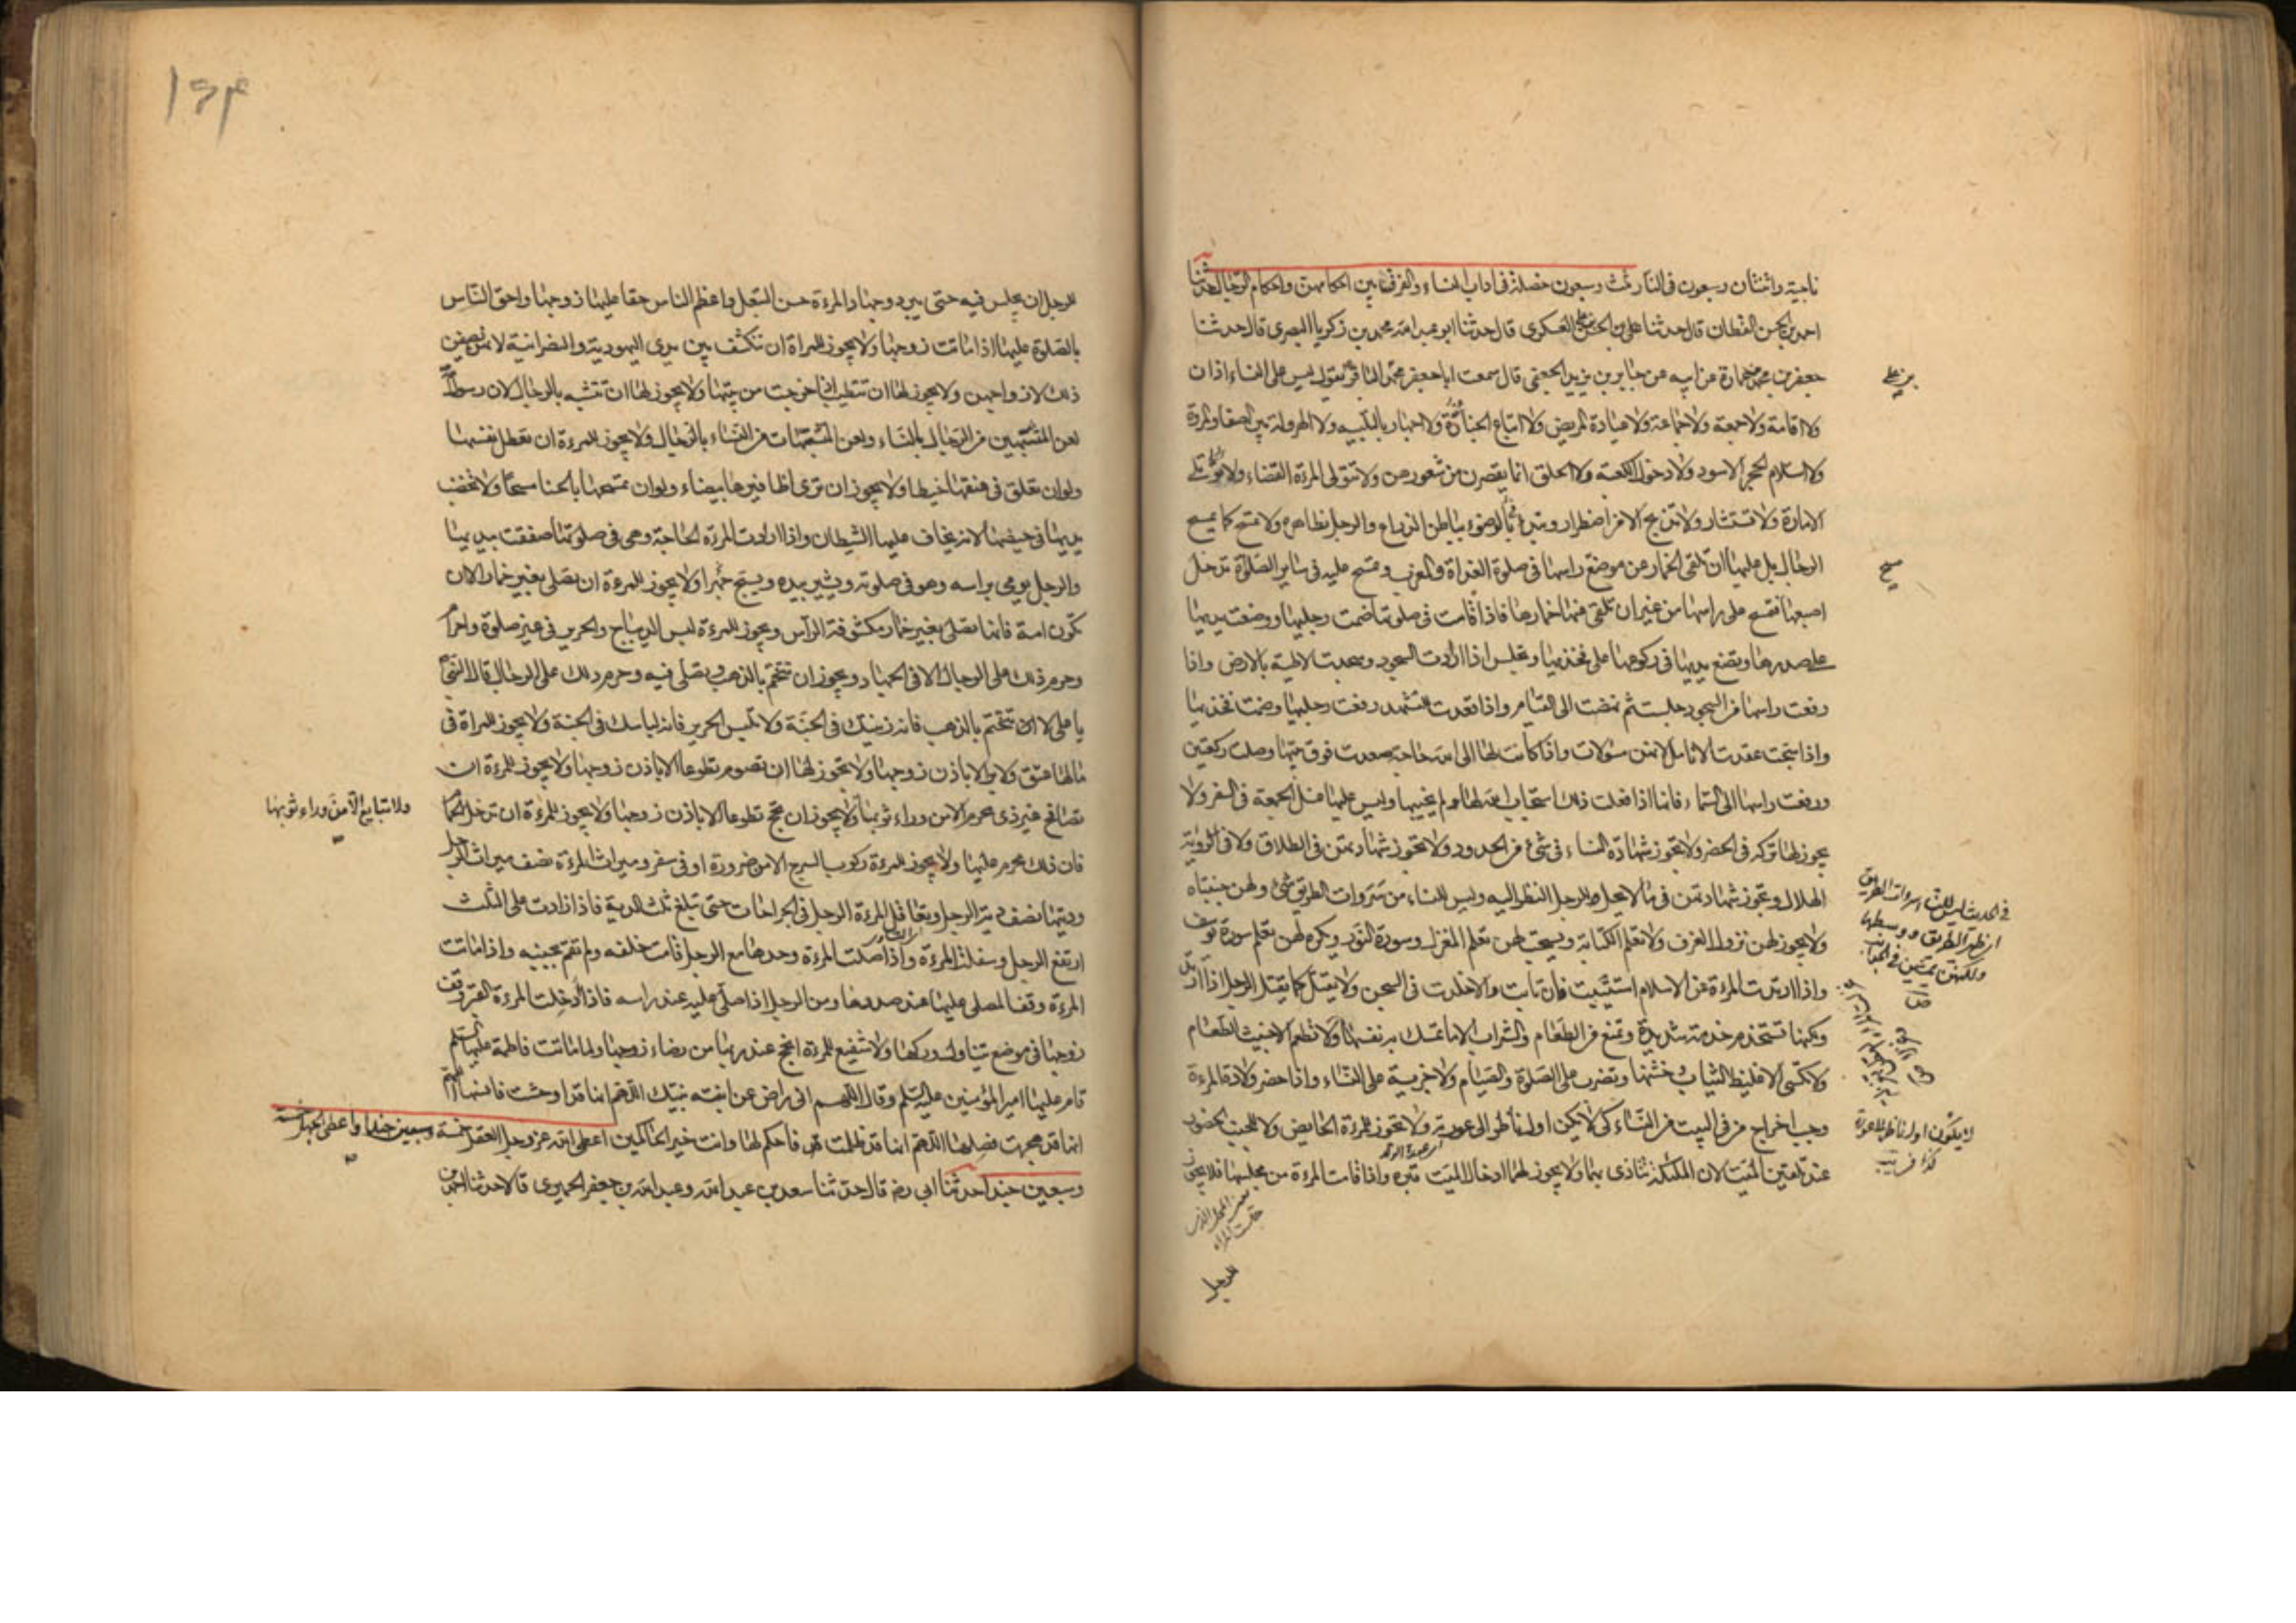 ناجية واثنتان وسبعون فى النار ثلث وسبعون خصلة فى اداب النساء والفرق بين احكامهن واحكام الرجال حدثنا
احمد بن الحسن القطان قال حدثنا الحسن بن على العسكرى قال حدثنا ابو عبد الله محمد بن زكريا البصرى قال حدثنا
جعفر بن محمد بن عمارة عن ابيه عن جابر بن يزيد الجعفى قال سمعت ابا جعفر محمد الباقر يقول ليس على النساء اذان
ولا اقامة ولا جمعة ولا جماعة ولا عيادة المريض ولا اتباع الجنازة ولا اجهار بالتلبيه ولا الهرولة بين الصفا والمروة
ولا استلام الحجر الاسود ولا دخول الكعبة ولا الحلق انما يقصرن من شعورهن ولا تتولى المرءة القضاء ولا تلى
الامارة ولا تستشار ولا تذبح الا من اضطرار وتبدء بالوضوء بباطن الذراع والرجل بظاهره ولا تمسح كما يمسح
الرجال بل عليها ان تلقى الخمار من موضع راسها فى صلوة الغداة والمغرب وتمسح عليه فى ساير الصلوة تدخل
اصبعها فتمسح على راسها من غير ان تلقى عنها خمارها فاذا قامت فى صلوتها ضمت رجليها ووضعت يديها
على صدرها وتضع يديها فى ركوعها على فخذيها وتجلس اذا ارادت السجود وسجدت لاطئة بالارض واذا
رفعت راسها من السجود جلست ثم نهضت الى القيام واذا قعدت للتشهد رفعت رجليها وضمت فخذيها
واذا سبحت عقدت الانامل لانهن مسؤلات واذا كانت لها الى الله حاجة صعدت فوق بيتها وصلت ركعتين
ورفعت راسها الى السماء فانها اذا فعلت ذلك استجاب الله لها ولم يخيبها وليس عليها غسل الجمعة فى السفر ولا
يجوز لها تركه فى الحضر ولا تجوز شهادة النساء فى شئ من الحدود ولا تجوز شهادتهن فى الطلاق ولا فى رؤية
الهلال وتجوز شهادتهن فى ما لا يحل للرجل النظر اليه وليس للنساء من سروات الطريق شئ ولهن جنبتاه
ولا يجوز لهن نزول الغرف ولا تعلم الكتابة ويستحب لهن تعلم المغزل وسورة النور ويكره لهن تعلم سورة يوسف
واذا ارتدت المرءة عن الاسلام استتيبت فان تابت والا خلدت فى السجن ولا تقتل كما يقتل الرجل اذا ارتد
ولكنها تستخدم خدمة شديدة وتمنع من الطعام والشراب الا ما تمسك به نفسها ولا تطعم الا خبيث الطعام
ولا تكسى الا غليظ الثياب وخشنها وتضرب على الصلوة والصيام ولا جزية على النساء واذا حضر ولادة المرءة
وجب اخراج من فى البيت من النساء كى لا يكن اول ناظر الى عورته ولا تجوز للمرءة الحايض ولا للجنب الحضور
عند تلقين الميت لان الملئكة تتاذى بهما ولا يجوز لهما ادخال الميت قبره واذا قامت المرءة من مجلسها فلا يجوز
للرجل
فى الحديث ليس للنساء سروات الطريق
لا يكون اول ناظر للاعورة
للرجل ان يجلس فيه حتى يبرد وجهاد المرءة حسن التبعل واعظم الناس حقا عليها زوجها واحق الناس
بالصلوة عليها اذا ماتت زوجها ولا يجوز للمراة ان تنكشف بين يدى اليهودية والنصرانية لانهن يصفن
ذلك لازواجهن ولا يجوز لها ان تتطيب اذا خرجت من بيتها ولا يجوز لها ان تتشبه بالرجال لان رسول الله
لعن المتشبهين من الرجال بالنساء ولعن المتشبهات من النساء بالرجال ولا يجوز للمرءة ان تعطل نفسها
ولو ان تعلق فى عنقها خيطا ولا يجوز ان ترى اظافيرها بيضاء ولو ان تمسحها بالحنا مسحا ولا تخضب
يديها فى حيضها لانه يخاف عليها الشيطان واذا ارادت المرءة الحاجة وهى فى صلوتها صفقت بيديها
والرجل يومى براسه وهو فى صلوته ويشير بيده ويسبح جهرا ولا يجوز للمرءة ان تصلى بغير خمار الا ان
تكون امة فانها تصلى بغير خمار مكشوفة الراس ويجوز للمرءة لبس الديباج والحرير فى غير صلوة واحرام
وحرم ذلك على الرجال الا فى الجهاد ويجوز ان تتختم بالذهب وتصلى فيه وحرم ذلك على الرجال قال النبى
يا على لا تتختم بالذهب فانه زينتك فى الجنة ولا تلبس الحرير فانه لباسك فى الجنة ولا يجوز للمراة فى
مالها عتق ولا بر الا باذن زوجها ولا يجوز لها ان تصوم تطوعا الا باذن زوجها ولا يجوز للمرءة ان
تصافح غير ذى محرم الا من وراء ثوبها ولا يجوز ان تحج تطوعا الا باذن زوجها ولا يجوز للمرءة ان تدخل الحمام
ولا تبايع الا من وراء ثوبها
فان ذلك محرم عليها ولا يجوز للمرءة ركوب السرج الا من ضرورة او فى سفر وميراث المرءة نصف ميراث الرجل
وديتها نصف دية الرجل وتعاقل المرءة الرجل فى الجراحات حتى تبلغ ثلث الدية فاذا زادت على الثلث
ارتفع الرجل وسفلت المرءة واذا صلت المرءة وحدها مع الرجل قامت خلفه ولم تقم بجنبه واذا ماتت
المرءة وقف المصلى عليها عند صدرها ومن الرجل اذا صلى عليه عند راسه فاذا ادخلت المرءة القبر وقف
زوجها فى موضع يتناول وركها ولا شفيع للمرءة انجح عند ربها من رضاء زوجها ولما ماتت فاطمة عليها السلم
قام عليها امير المؤمنين عليه السلم وقال اللهم انى راض عن ابنته نبيك اللهم انها قد اوحشت فانسها اللهم
انها قد هجرت فصلها اللهم انها قد ظلمت فاحكم لها وانت خير الحاكمين اعطى الله عز وجل العقل خمسة وسبعين جندا واعطى الجهل خمسة
وسبعين جندا حدثنا ابى رضه قال حدثنا سعد بن عبد الله وعبد الله بن جعفر الحميرى قالا حدثنا احمد بن